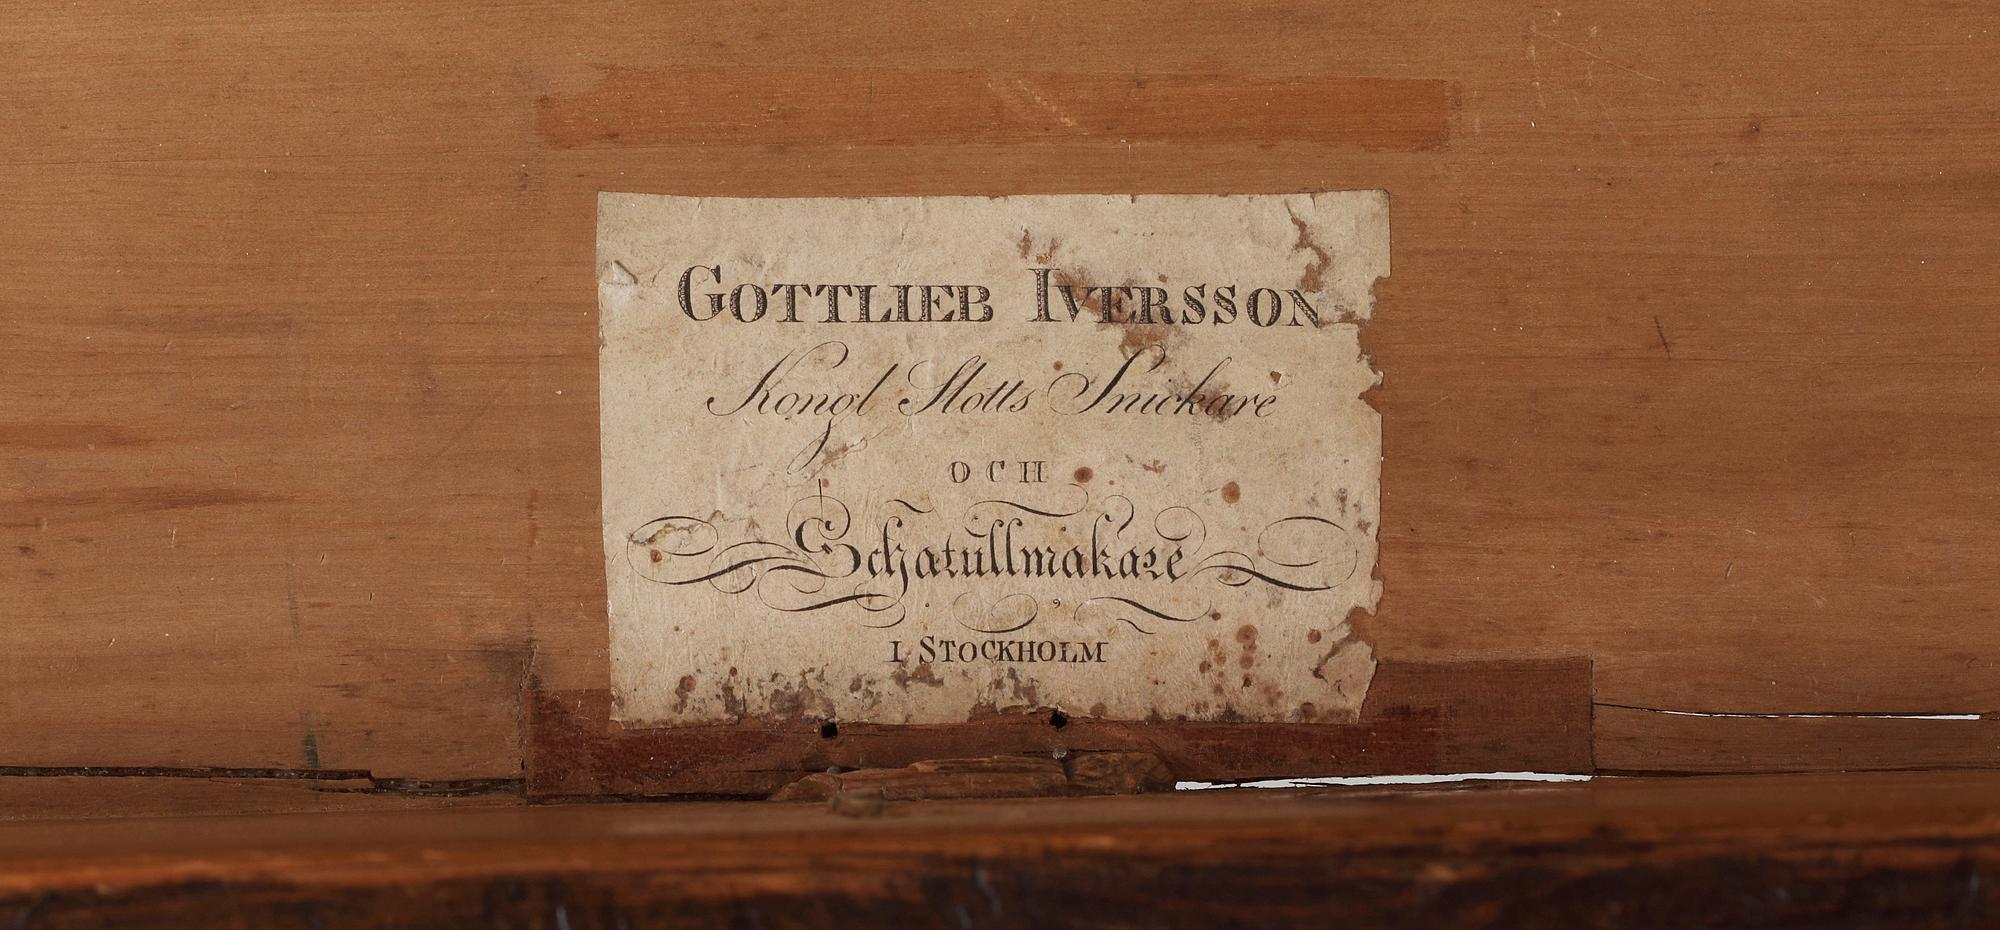 GOTTLIEB IVERSSON
Kongl Slotts Snickare
OCH
Schatullmakare
I STOCKHOLM